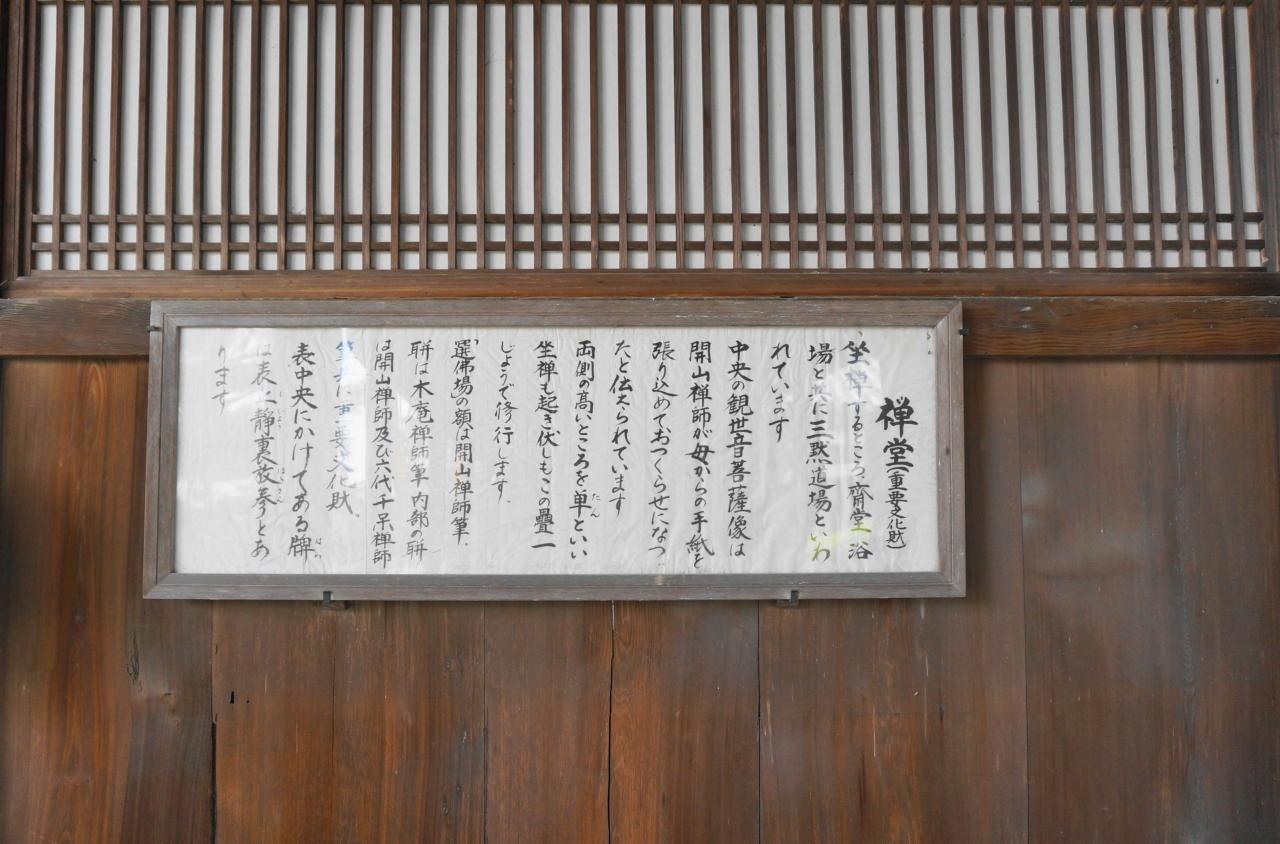 禅堂(重要文化財)
坐禅するところ、齋堂、浴
場と共に三黙道場といわ
れています
中央の観世音菩薩像は
開山禅師が母からの手紙を
張り込めておつくらせになっ
たと伝えられています
両側の高いところを単といい
たん
坐禅も起き伏しもこの疊一
じょうで修行します。
選佛場の額は開山禅師筆、
聨は木庵禅師筆 内部の聨
は開山禅師及び六代千呆禅師
筆共に重要文化財。
表中央にかけてある牌
はい
は表止静裏放参とあ
ります